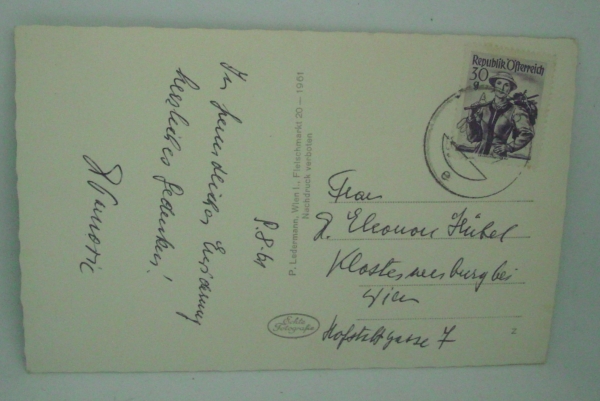 In freundlicher Erinnerung
herzliches Gedenken!
8.8.61
P. Ledermann, Wien I., Fleischmarkt 20 — 1961
Nachdruck verboten
Echte
Fotografie
Republik Österreich
30
g
Frau
Eleonore Hübel
Klosterneuburg bei
Wien
Hofstattgasse 7
e
2